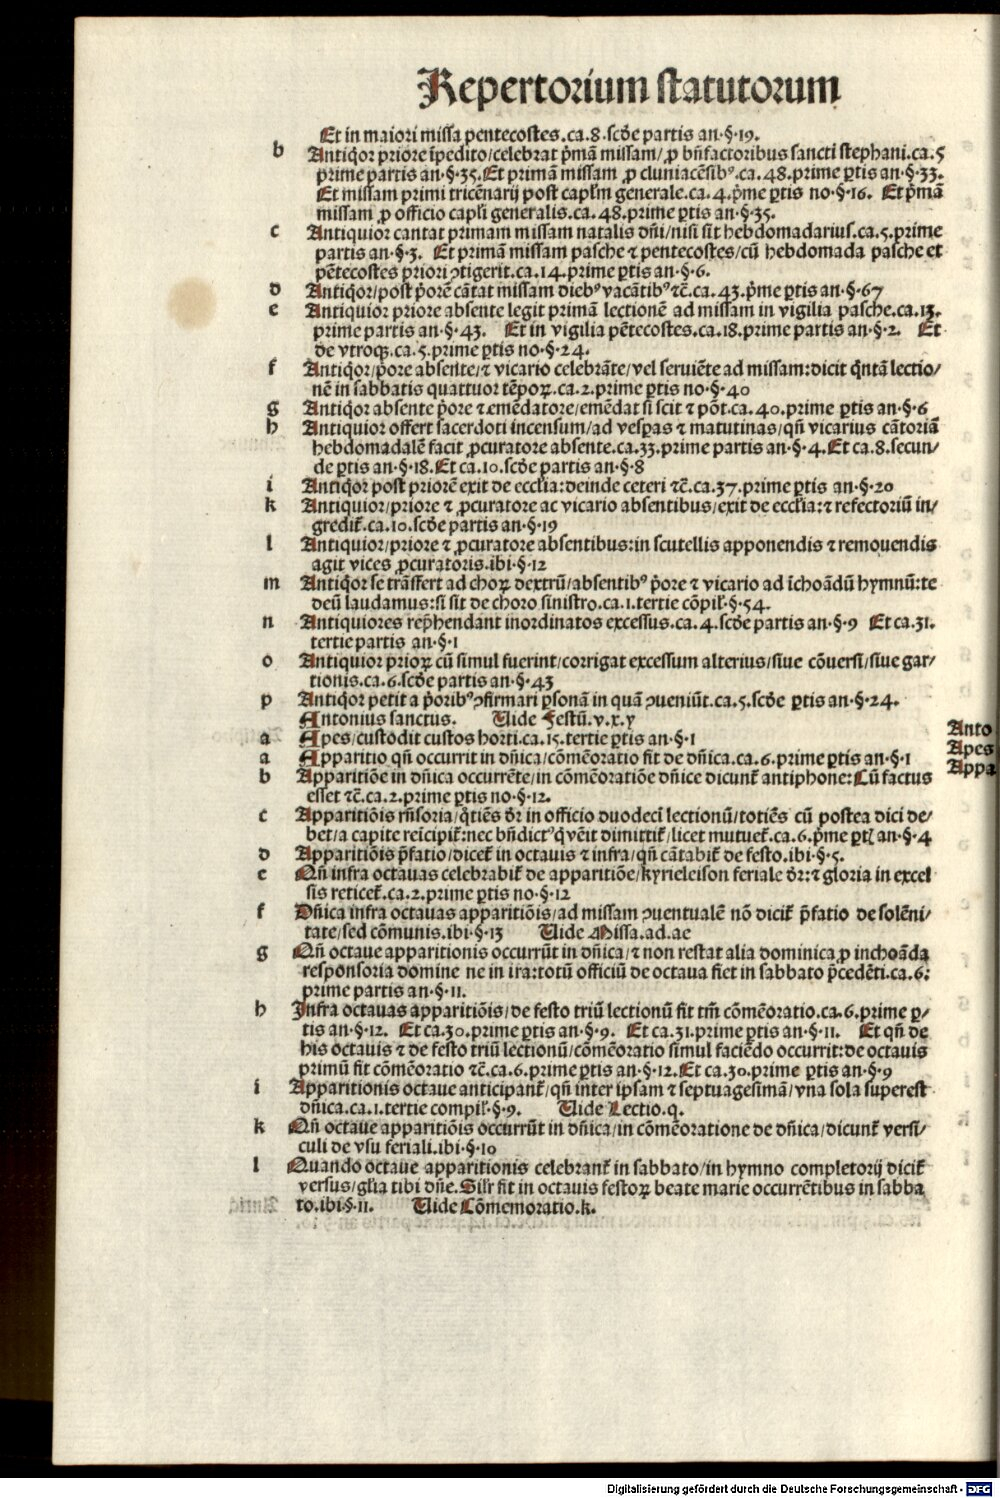 Repertorium statutorum
Et in maiori missa pentecostes.ca.8.scđe partis an.§.19.
b Antiq̇or priore īpedito/celebrat p̄mā missam/ꝓ bn̄factoribus sancti stephani.ca.5
prime partis an.§.35.Et primā missam ꝓ cluniacēsibꝰ.ca.48.prime ꝑtis an.§.33.
Et missam primi tricēnarij post capl'm generale.ca.4.p̄me ꝑtis no.§.16. Et p̄mā
missam ꝓ officio capl'i generalis.ca.48.prime ꝑtis an.§.35.
c Antiquior cantat primam missam natalis dn̄i/nisi sit hebdomadarius.ca.5.prime
partis an.§.3. Et primā missam pasche ⁊ pentecostes/cū hebdomada pasche et
pētecostes priori ꝯtigerit.ca.14.prime ꝑtis an.§.6.
d Antiq̇or/post p̄orē cātat missam diebꝰ vacātibꝰ ⁊c̄.ca.43.p̄me ꝑtis an.§.67
e Antiquior priore absente legit primā lectionē ad missam in vigilia pasche.ca.13.
prime partis an.§.43. Et in vigilia pētecostes.ca.18.prime partis an.§.2. Et
de vtroqꝫ.ca.5.prime ꝑtis no.§.24.
f Antiq̇or/p̄ore absente/⁊ vicario celebrāte/vel seruiēte ad missam:dicit q̇ntā lectio/
nē in sabbatis quattuor tēpoꝝ.ca.2.prime ꝑtis no.§.40
g Antiq̇or absente p̄ore ⁊ emēdatore/emēdat si scit ⁊ pōt.ca.40.prime ꝑtis an.§.6
h Antiquior offert sacerdoti incensum/ad vesꝑas ⁊ matutinas/qn̄ vicarius cātoriā
hebdomadalē facit ꝓcuratore absente.ca.33.prime partis an.§.4.Et ca.8.secun/
de ꝑtis an.§.18.Et ca.10.scđe partis an.§.8
i Antiq̇or post priorē exit de eccl'ia:deinde ceteri ⁊c̄.ca.37.prime ꝑtis an.§.20
k Antiquior/priore ⁊ ꝓcuratore ac vicario absentibus/exit de eccl'ia:⁊ refectoriū in/
gredit᷑.ca.10.scđe partis an.§.19
l Antiquior/priore ⁊ ꝓcuratore absentibus:in scutellis apponendis ⁊ remouendis
agit vices ꝓcuratoris.ibi.§.12
m Antiq̇or se trāsfert ad choꝝ dextrū/absentibꝰ p̄ore ⁊ vicario ad īchoādū hymnū:te
deū laudamus:si sit de choro sinistro.ca.1.tertie cōpil'.§.54.
n Antiquiores rep̄hendant inordinatos excessus.ca.4.scđe partis an.§.9 Et ca.31.
tertie partis an.§.1
o Antiquior prioꝝ cū simul fuerint/corrigat excessum alterius/siue cōuersi/siue gar/
tionis.ca.6.scđe partis an.§.43
p Antiq̇or petit a p̄oribꝰ ꝯfirmari ꝑsonā in quā ꝯueniūt.ca.5.scđe ꝑtis an.§.24.
Antonius sanctus. Uide Festū.v.x.y
Anto
a Apes/custodit custos horti.ca.15.tertie ꝑtis an.§.1
Apes
a Apparitio qn̄ occurrit in dn̄ica/cōmēoratio fit de dn̄ica.ca.6.prime ꝑtis an.§.1
Appa
b Apparitiōe in dn̄ica occurrēte/in cōmēoratiōe dn̄ice dicunt᷑ antiphone:Cū factus
esset ⁊c̄.ca.2.prime ꝑtis no.§.12.
c Apparitiōis rn̄soria/q̇tiēs dr̄ in officio duodecī lectionū/totiēs cū postea dici de/
bet/a capite reīcipit᷑:nec bn̄dictꝰ q̇ vēit dimittit᷑/licet mutuet᷑.ca.6.p̄me ꝑtꝭ an.§.4
d Apparitiōis p̄fatio/dicet᷑ in octauis ⁊ infra/qn̄ cātabit᷑ de festo.ibi.§.5.
e Qn̄ infra octauas celebrabit᷑ de apparitiōe/kyrieleison feriale dr̄:⁊ gloria in excel
sis reticet᷑.ca.2.prime ꝑtis no.§.12
f Dn̄ica infra octauas apparitiōis/ad missam ꝯuentualē nō dicit᷑ p̄fatio de solēni/
tate/sed cōmunis.ibi.§.13 Uide Missa.ad.ae
g Qn̄ octaue apparitionis occurrūt in dn̄ica/⁊ non restat alia dominica ꝓ inchoāda
responsoria domine ne in ira:totū officiū de octaua fiet in sabbato p̄cedēti.ca.6.
prime partis an.§.11.
h Infra octauas apparitiōis/de festo triū lectionū fit tm̄ cōmēoratio.ca.6.prime ꝑ/
tis an.§.12. Et ca.30.prime ꝑtis an.§.9. Et ca.31.prime ꝑtis an.§.11. Et qn̄ de
his octauis ⁊ de festo triū lectionū/cōmēoratio simul faciēdo occurrit:de octauis
primū fit cōmēoratio ⁊c̄.ca.6.prime ꝑtis an.§.12.Et ca.30.prime ꝑtis an.§.9
i Apparitionis octaue anticipant᷑/qn̄ inter ipsam ⁊ septuagesimā/vna sola superest
dn̄ica.ca.1.tertie compil'.§.9. Uide Lectio.q.
k Qn̄ octaue apparitiōis occurrūt in dn̄ica/in cōmēoratione de dn̄ica/dicunt᷑ versi/
culi de vsu feriali.ibi.§.10
l Quando octaue apparitionis celebrant᷑ in sabbato/in hymno completorij dicit᷑
versus/gl'ia tibi dn̄e.Sil'r fit in octauis festoꝝ beate marie occurrētibus in sabba
to.ibi.§.11. Uide Cōmemoratio.k.
Digitalisierung gefördert durch die Deutsche Forschungsgemeinschaft - DFG